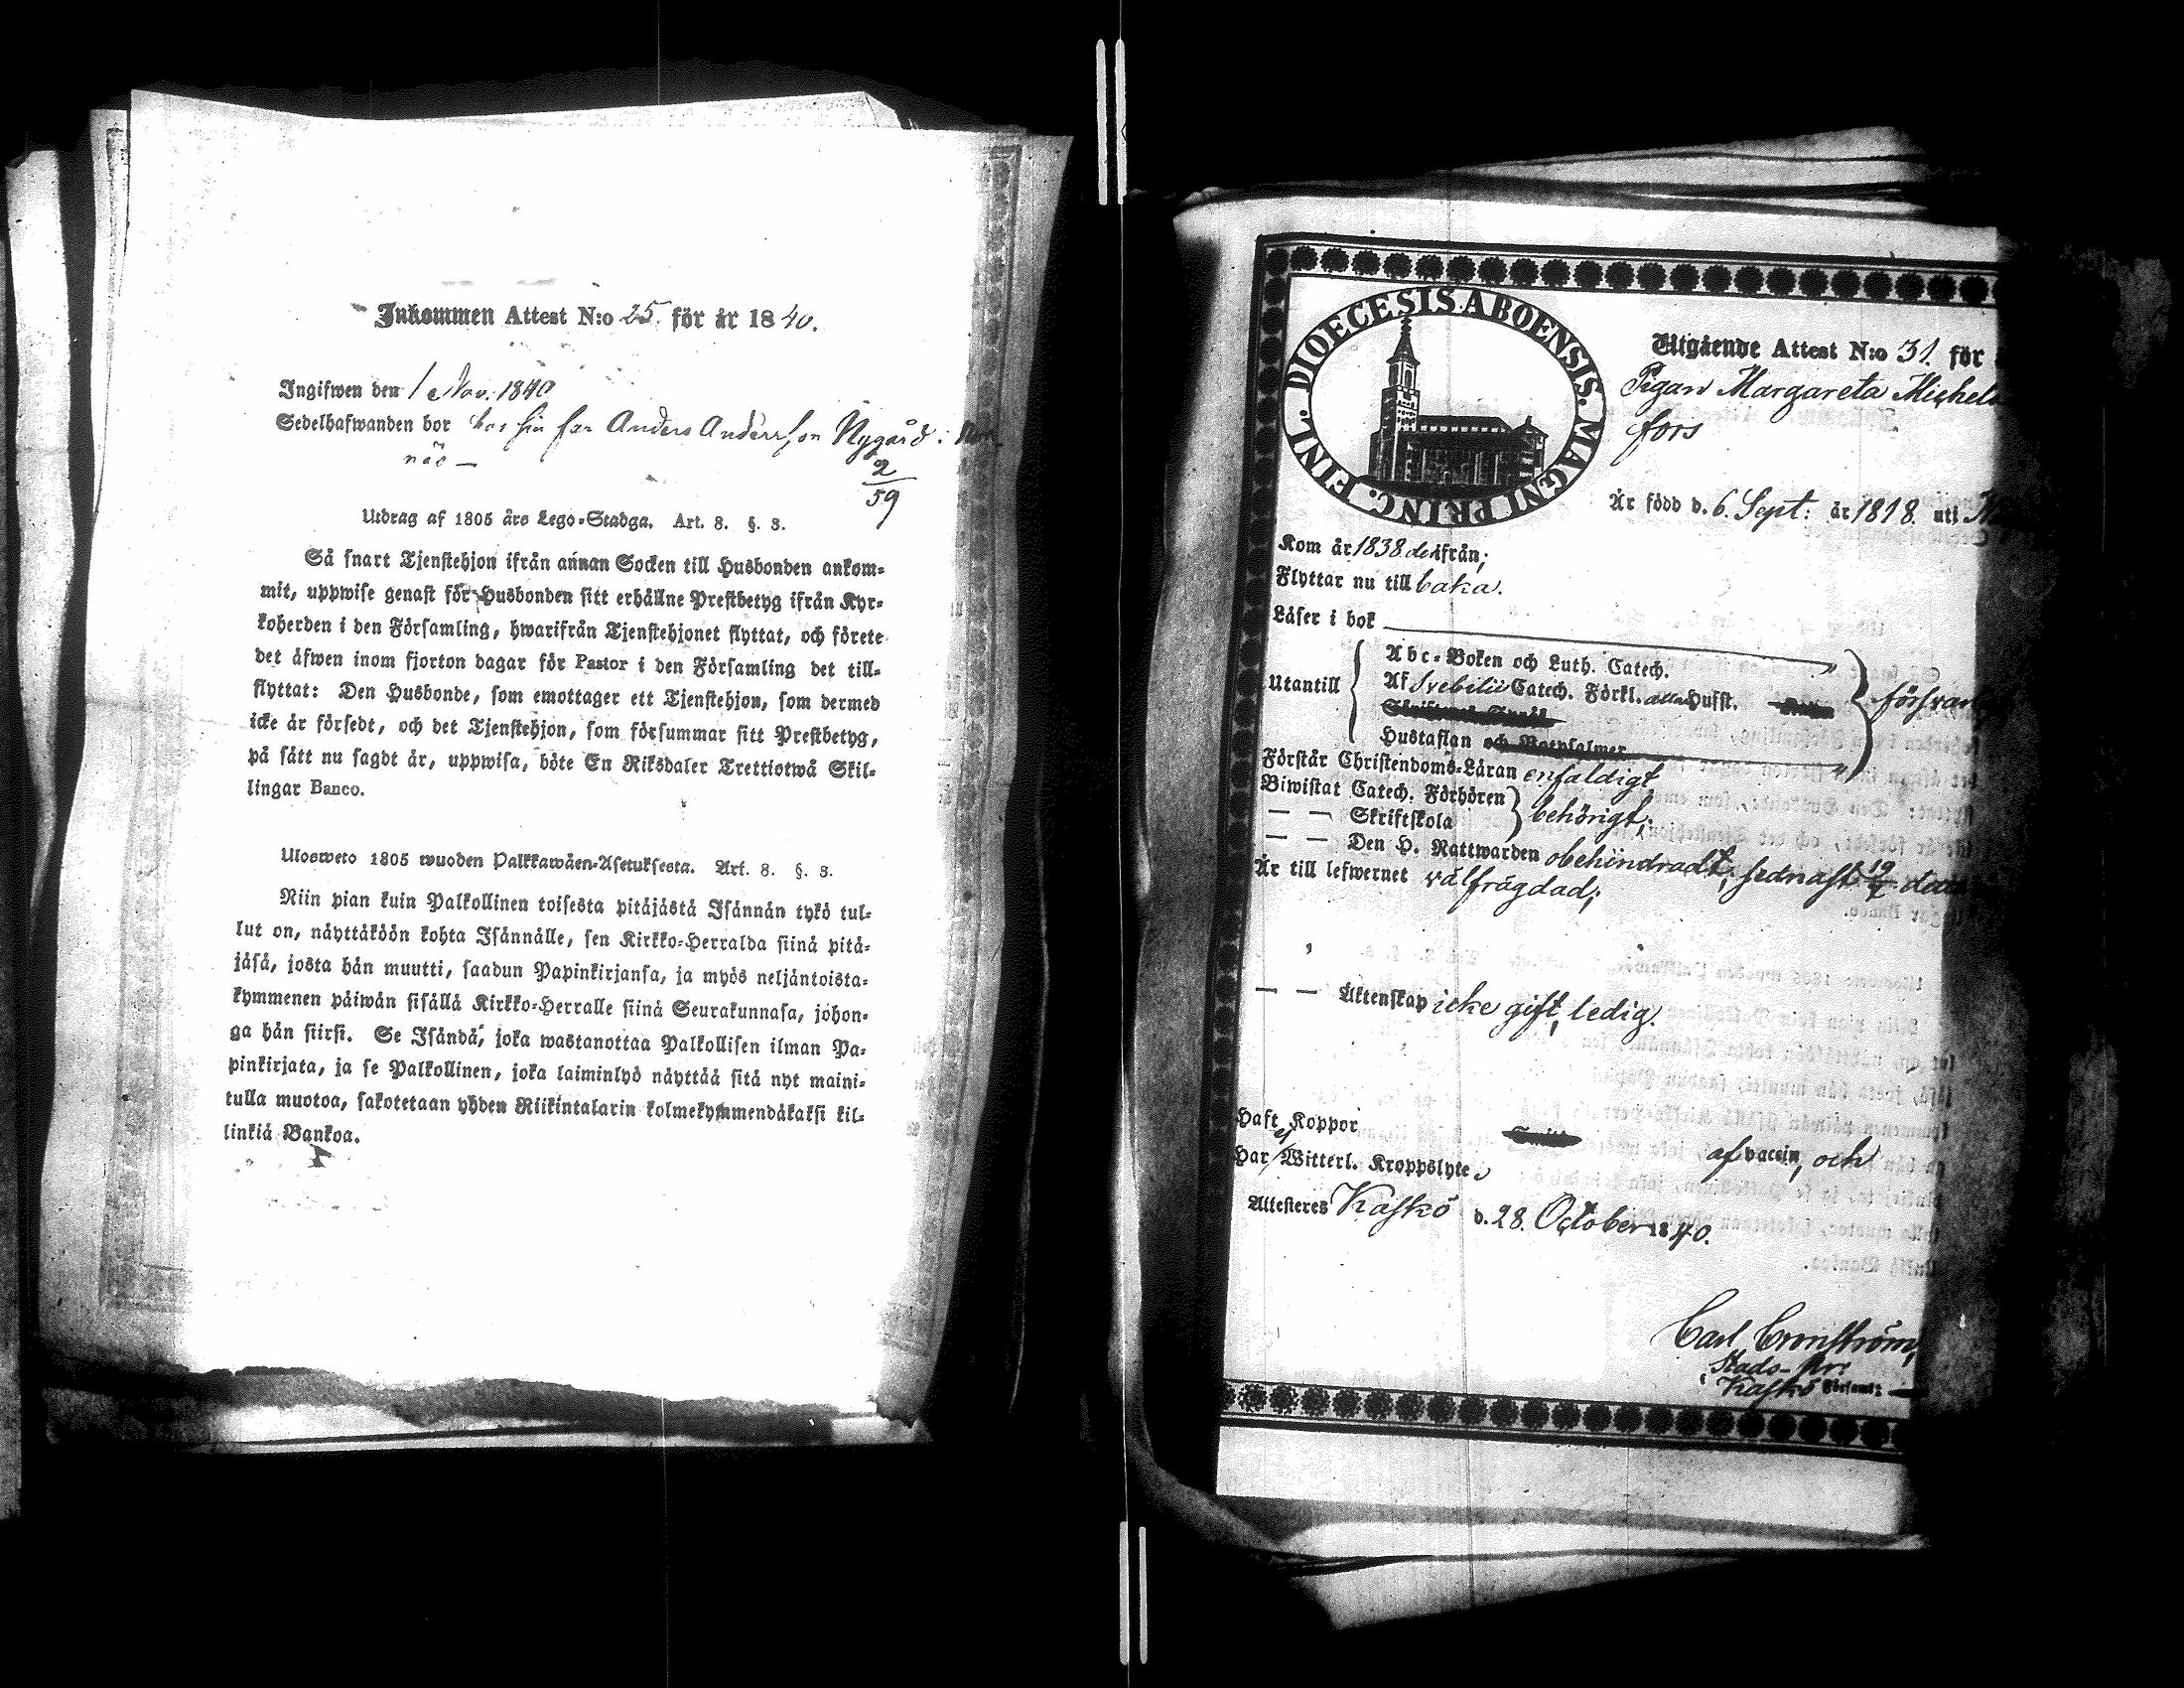 Inkommen Attest N:o 25. för år 1840.
Ingifwen den 1 Nov. 1840
Sedelhafwanden bor hos sin far Anders Andersson Nygård i
näs —
2
59
Utdrag af 1805 års Lego-Stadga. Art. 8. §. 3.
Så snart Tjenstehjon ifrån annan Socken till Husbonden ankom-
mit, uppwise genast för Husbonden sitt erhållne Prestbetyg ifrån Kyr-
koherden i den Församling, hwarifrån Tjenstehjonet flyttat, och förete
det äfwen inom fjorton dagar för Pastor i den Församling det till-
flyttat: Den Husbonde, som emottager ett Tjenstehjon, som dermed
icke är försedt, och det Tjenstehjon, som försummar sitt Prestbetyg,
på sätt nu sagdt är, uppwisa, böte En Riksdaler Trettiotwå Skil-
lingar Banco.
Ulosweto 1805 wuoden Palkkawäen-Asetuksesta. Art. 8. §. 3.
Niin pian kuin Palkollinen toisesta pitäjästä Isännän tykö tul-
lut on, näyttäköön kohta Isännälle, sen Kirkko-Herralda siinä pitä-
jäsä, josta hän muutti, saadun Papinkirjansa, ja myös neljäntoista-
kymmenen päiwän sisällä Kirkko-Herralle siinä Seurakunnasa, johon-
ga hän siirsi. Se Isändä, joka wastanottaa Palkollisen ilman Pa-
pinkirjata, ja se Palkollinen, joka laiminlyö näyttää sitä nyt maini-
tulla muotoa, sakotetaan yhden Riikintalarin kolmekymmendäkaksi kil-
linkiä Bankoa.
FINL. DIOECESIS. ABOENSIS. MAGNI PRINC.
Utgående Attest N:o 31. för
Pigan Margareta Michels
fors
Är född d. 6. Sept: år 1818. uti
Kom år 1838 derifrån;
Flyttar nu till baka.
Läser i bok
Abc-Boken och Luth. Catech.
Utantill Af Svebilii Catech. Förkl. alla Hufst.
Hustaflan och Botpsalmer
Förstår Christendoms-Läran enfaldigt,
Biwistat Catech. Förhören
— — Skriftskola behörigt;
— — Den H. Nattwarden obehindradt, sednast 19
Är till lefwernet välfrägdad;
— — Äktenskap icke gift, ledig.
Haft Koppor af vaccin, och
Har ej Witterl. Kroppslyte
Attesteras Kaskö d. 28. October 1840.
Carl Cronström,
Stads-
Kaskö Församl: